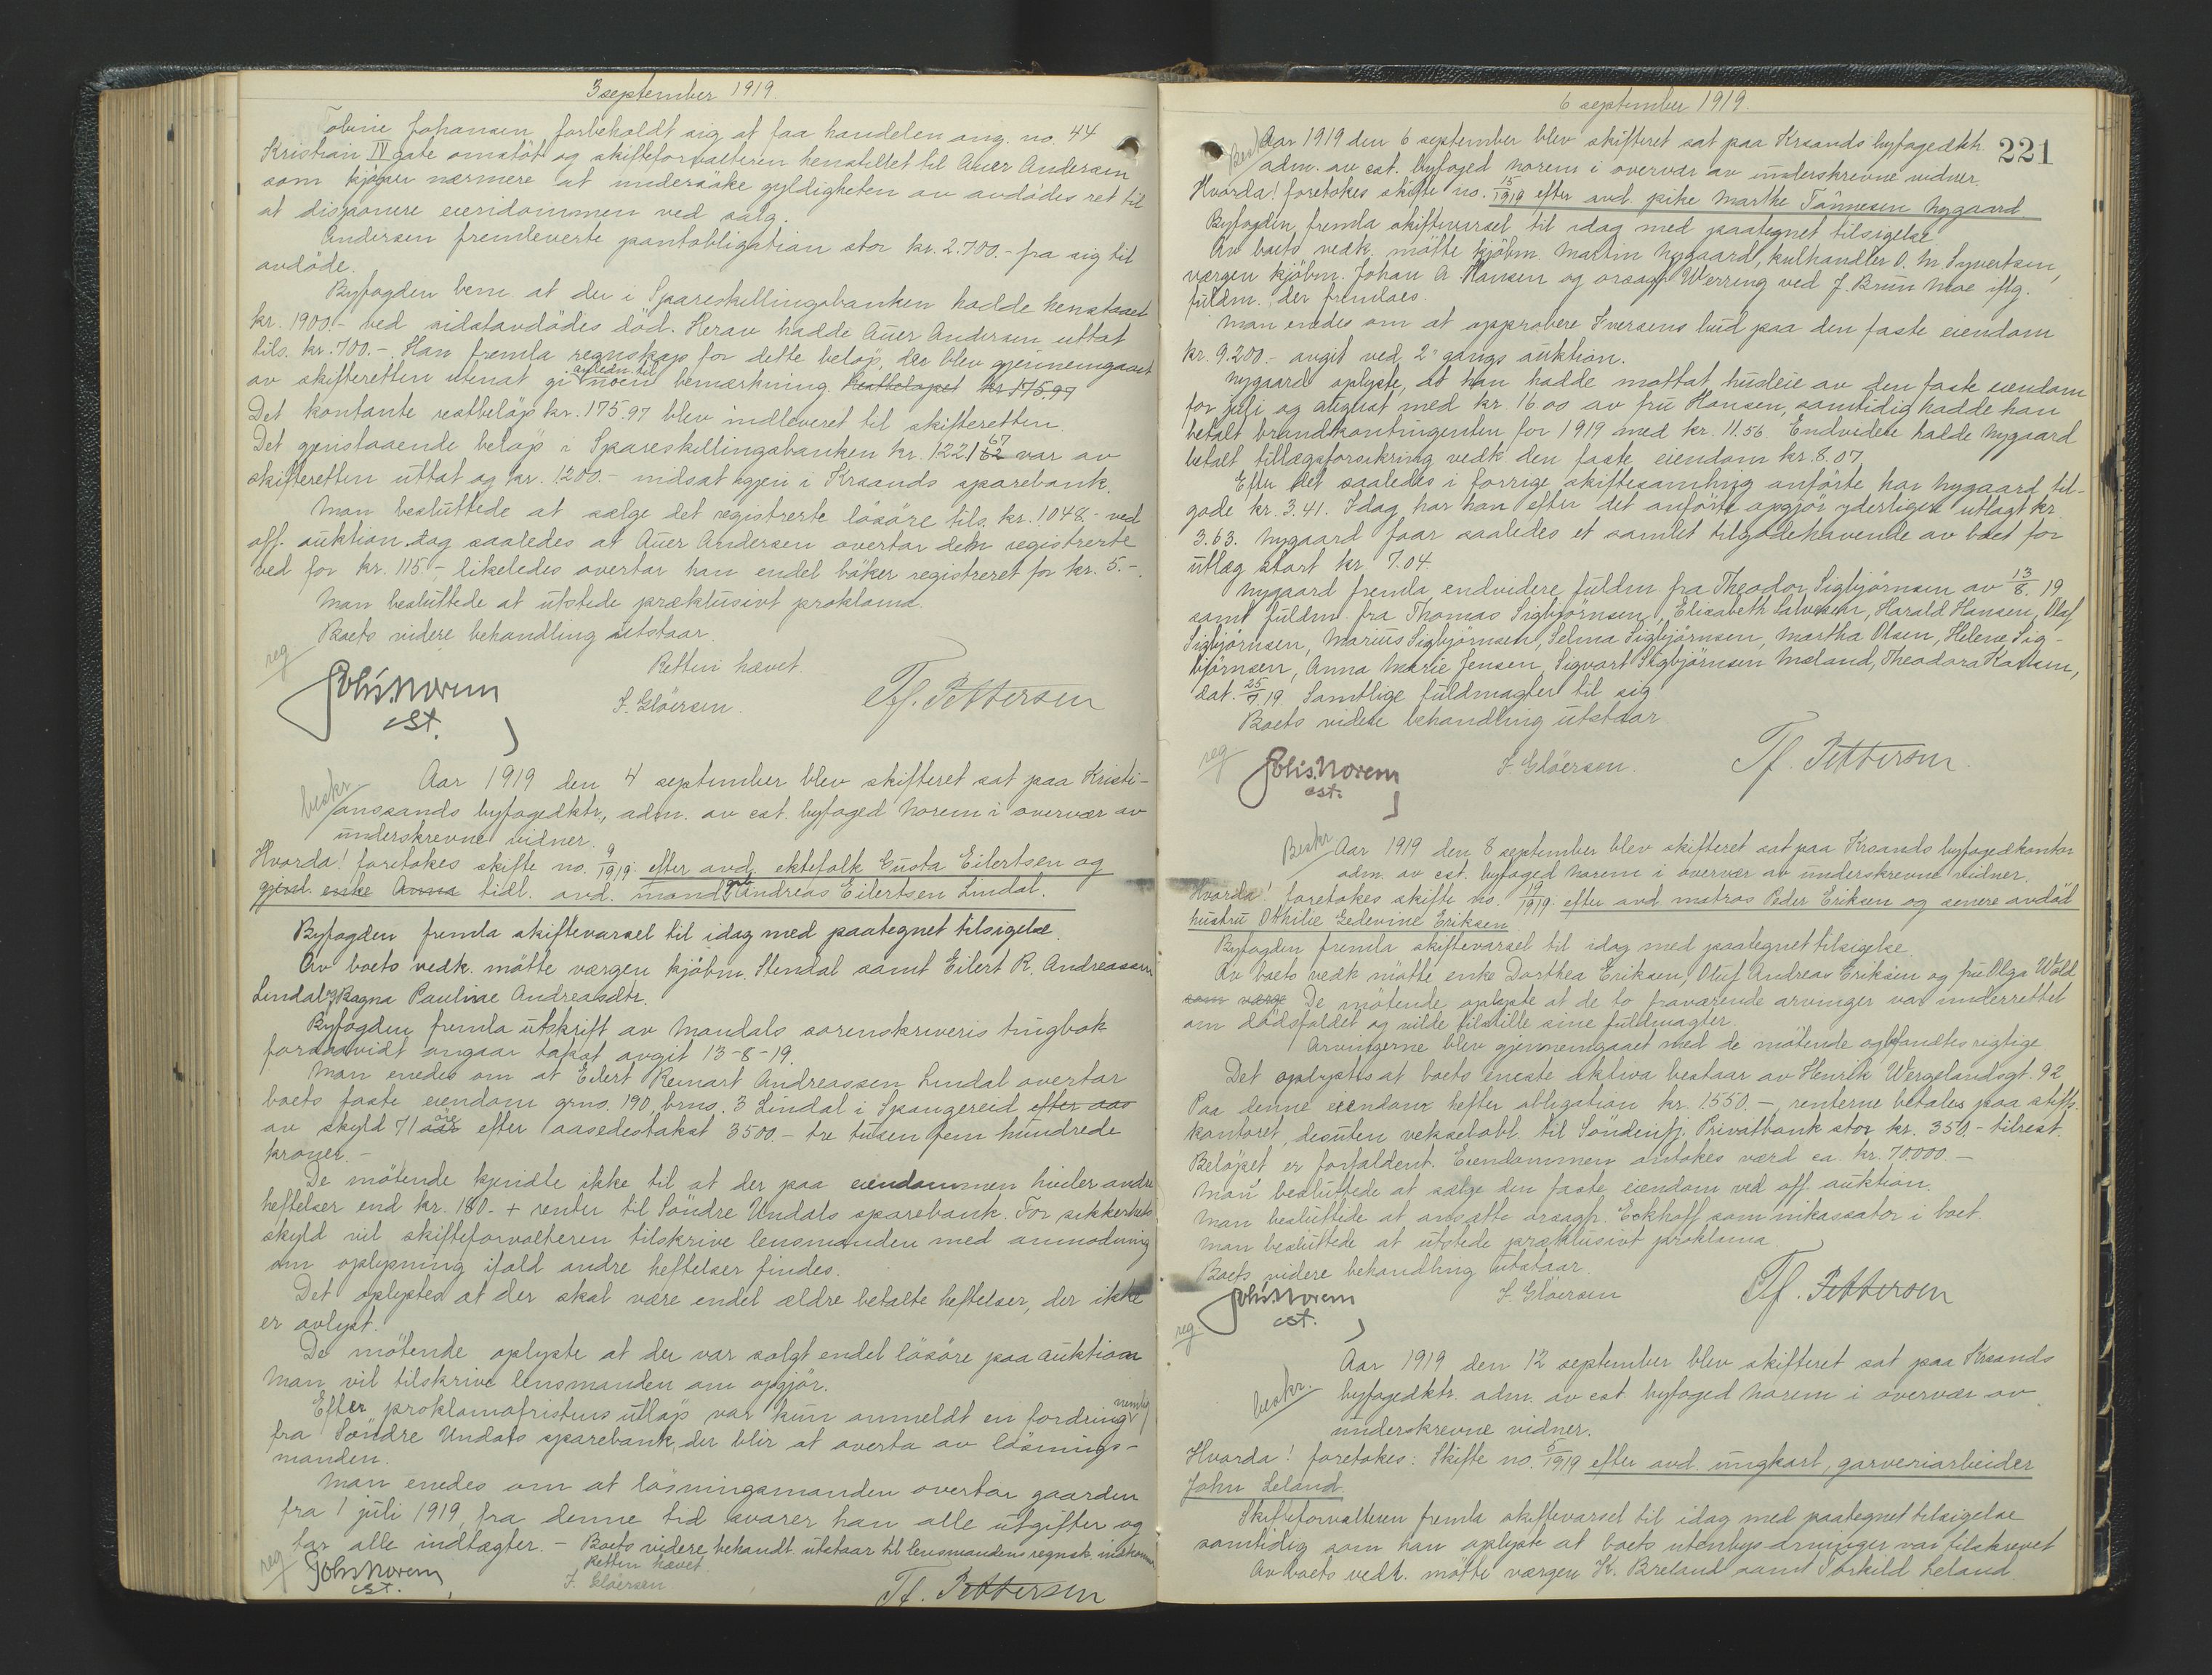 3 september 1919.
Tobine Johansen forbeholdt sig at faa handelen ang. no. 44
Kristian IV gate omstöt og skifteforvalteren henstillet til Auer Andersen
som kjöper nærmere at undersöke gyldigheten av avdödes ret til
at disponere eiendommen ved salg.
Andersen fremleverte pantobligation stor kr. 2.700.- fra sig til
avdöde.
Byfogden bem. at der i Spareskillingsbanken hadde henstaaet
kr. 1900.- ved sidstavdödes död. Herav hadde Auer Andersen uttat
tils. kr. 700.-. Han fremla regnskap for dette belöp, der blev gjennemgaaet
av skifteretten utenat gi anledn. til noen bemærkning. Restbelöpet kr 175.97
Det kontante restbelöp kr. 175.97 blev indleveret til skifteretten.
Det gjenstaaende belöp i Spareskillingsbanken kr. 1221 62 67 var av
skifteretten uttat og kr. 1200.- indsat igjen i Krsands sparebank.
Man besluttede at sælge det registrerte lösöre tils. kr. 1048.- ved
off. auktion dog saaledes at Auer Andersen overtar den registrerte
ved for kr. 115.-, likeledes overtar han endel böker registreret for kr. 5.-.
Man besluttede at utstede præklusivt proklama.
Boets videre behandling utstaar.
reg
Retten hævet.
Johs. Norem
cst.
J. Glöersen.
Tf. Pettersen
beskr
Aar 1919 den 4 september blev skifteret sat paa Kristi-
anssands byfogedktr., adm. av cst. byfoged Norem i overvær av
underskrevne vidner.
Hvorda! foretokes skifte no. 9/1919 efter avd. ektefolk Gusta Eilertsen og
gjenl. enke Anna tidl. avd. mand Andreas Eilertsen Lindal.
Byfogden fremla skiftevarsel til idag med paategnet tilsigelse.
Av boets vedk. mötte værgen kjöbm. Stendal samt Eilert R. Andreassen
Lindal og Ragna Pauline Andreasdtr.
Byfogden fremla utskrift av Mandals sorenskriveris tingbok
forsaavidt angaar takst avgit 13-8-19.
Man enedes om at Eilert Reinart Andreassen Lindal overtar
boets faste eiendom grno. 190, brno. 3 Lindal i Spangereid efter aas
av skyld 71 öre efter aasedestakst 3500.- tre tusen fem hundrede
kroner.-
De mötende kjendte ikke til at der paa eiendommen hviler andre
heftelser end kr. 180.- + renter til Söndre Undals sparebank. For sikkerhets
skyld vil skifteforvalteren tilskrive lensmanden med anmodning
om oplysning ifald andre heftelser findes.
Det oplystes at der skal være endel ældre betalte heftelser, der ikke
er avlyst.
De mötende oplyste at der var solgt endel lösöre paa auktion
Man vil tilskrive lensmanden om opgjör.
Efter proklamafristens utlöp var kun anmeldt en fordring nemlig
fra Söndre Undals sparebank, der blir at overta av lösnings-
manden.
Man enedes om at lösningsmanden overtar gaarden
fra 1 juli 1919, fra denne tid svarer han alle utgifter og
tar alle indtægter. - Boets videre behandl. utstaar til lensmandens regnsk.
reg
Retten hævet.
Johs. Norem
cst.
J. Glöersen
Tf. Pettersen
6 september 1919.
221
Aar 1919 den 6 september blev skifteret sat paa Krsands byfogedktr.
adm. av cst. byfoged Norem i overvær av underskrevne vidner.
Hvorda! foretokes skifte no. 15/1919 efter avd. pike Marthe Tönnesen Nygaard
Byfogden fremla skiftevarsel til idag med paategnet tilsigelse
Av boets vedk. mötte kjöbm. Martin Nygaard, kulhandler O. M. Syvertsen,
værgen kjöbm. Johan A Hansen og orsagf. Werring ved J. Bruun Moe iflg.
fuldm. der fremlaes.
Man enedes om at approbere Iversens bud paa den faste eiendom
kr. 9.200.- avgit ved 2' gangs auktion.
Nygaard oplyste, at han hadde mottat husleie av den faste eiendom
for juli og august med kr. 16.00 av fru Hansen, samtidig hadde han
betalt brandkontingenten for 1919 med kr. 11.56. Endvidere hadde Nygaard
betalt tillægsforsikring vedk. den faste eiendom kr. 8.07.
Efter det saaledes i forrige skiftesamling anförte har Nygaard til-
gode kr. 3.41. Idag har han efter det anförte opgjör yderligere utlagt kr.
3.63. Nygaard faar saaledes et samlet tilgodehavende av boet for
utlæg stort kr. 7.04.
Nygaard fremla endvidere fuldm fra Theodor Sigbjörnsen av 13/8. 19
samt fuldm. fra Thomas Sigbjörnsen, Elisabeth Salvesen, Harald Hansen, Olaf
Sigbjörnsen, Marius Sigbjörnsen, Selma Sigbjörnsen, Martha Olsen, Helene Sig-
björnsen, Anna Marie Jensen, Sigvart Sigbjörnsen Mæland, Theodora Karlsen,
dat. 25/7 19. Samtlige fuldmagter til sig
Boets videre behandling utstaar
reg
Johs. Norem
cst.
J. Glöersen.
Tf. Pettersen.
Beskr
Aar 1919 den 8 september blev skifteret sat paa Krsands byfogedkontor
adm. av cst. byfoged Norem i overvær av underskrevne vidner.
Hvorda! foretokes skifte no. 19/1919 efter avd matros Peder Eriksen og senere avdöd
hustru Othilie Gedevine Eriksen
Byfogden fremla skiftevarsel til idag med paategnet tilsigelse
Av boets vedk mötte enke Dorthea Eriksen, Oluf Andreas Eriksen og fru Olga Wold
som værge De mötende oplyste at de to fraværende arvinger var underrettet
om dödsfaldet og vilde tilstille sine fuldmagter.
Arvingerne blev gjennemgaaet med de mötende og fandtes rigtige
Det oplystes at boets eneste aktiva bestaar av Henrik Wergelandsgt. 92
Paa denne eiendom hefter obligation kr. 1.550.-, renterne betales paa stifts.
kontoret, desuten vekselobl. til Söndenfj. Privatbank stor kr. 350.- tilrest.
Belöpet er forfaldent. Eiendommen antokes værd ca. kr. 70.000.-
Man besluttede at sælge den faste eiendom ved off. auktion.
Man besluttede at ansætte orsagf. Eckhoff som inkassator i boet.
Man besluttede at utstede præklusivt proklama
Boets videre behandling utstaar.
Johs. Norem
cst.
J. Glöersen
Tf. Pettersen
reg.
beskr.
Aar 1919 den 12 september blev skifteret sat paa Krsands
byfogedktr. adm. av cst. byfoged Norem i overvær av
underskrevne vidner.
Hvorda! foretokes: Skifte no. 5/1919 efter avd. ungkarl, garveriarbeider
John Leland.
Skifteforvalteren fremla skiftevarsel til idag med paategnet tilsigelse
samtidig som han oplyste at boets utenbys arvinger var tilskrevet
Av boets vedk. mötte værgen K. Breland samt Torkild Leland